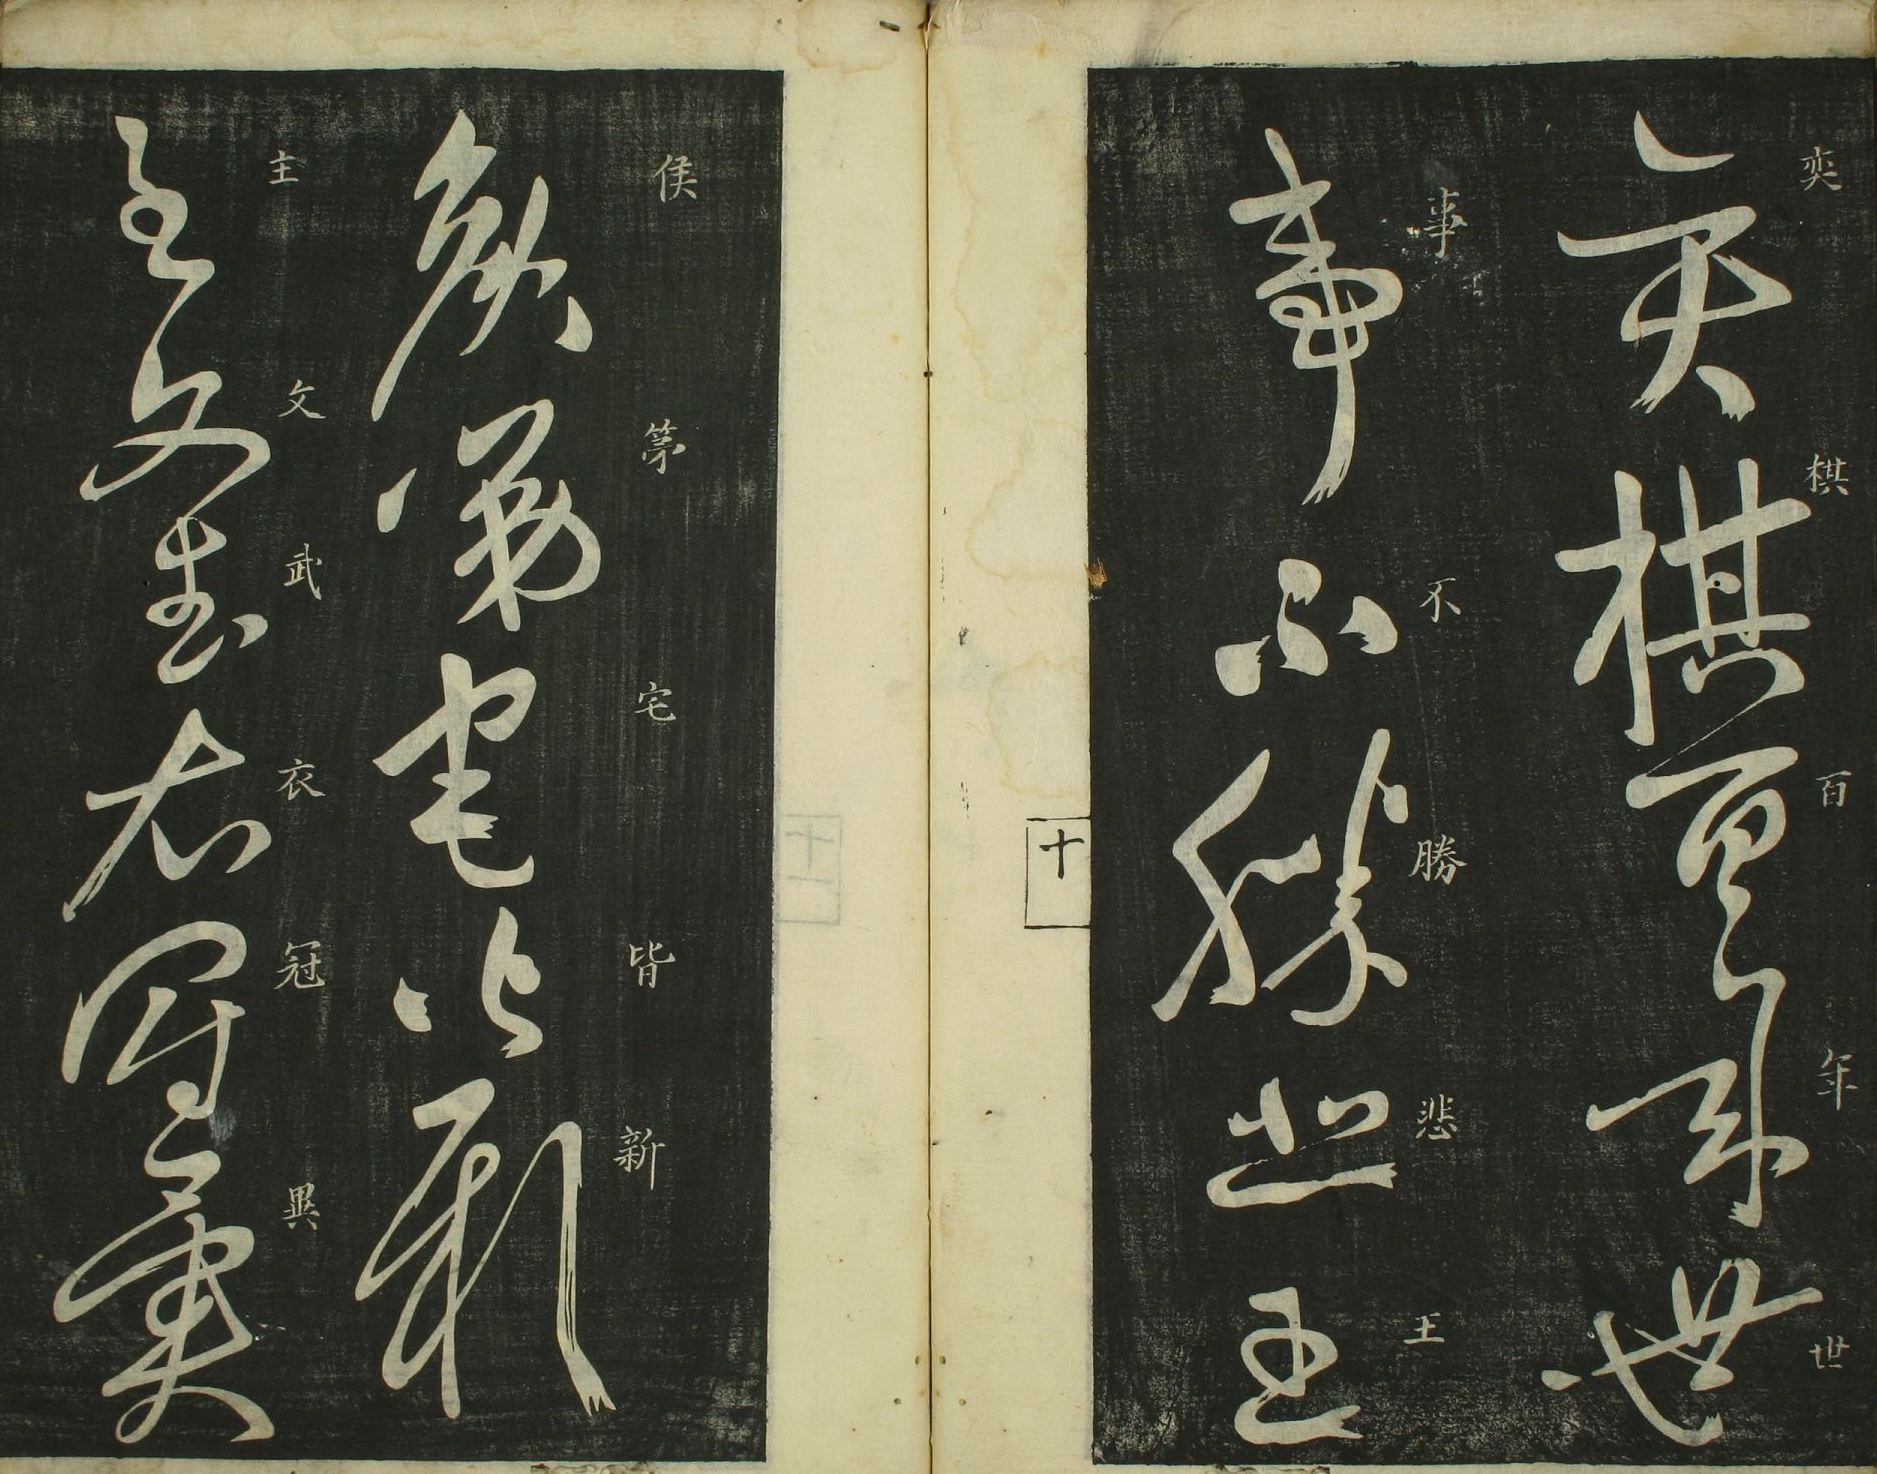 奕棋百年世
事不勝悲王
侯第宅皆新
主文武衣冠異
奕棋百年世
事不勝悲王
十
侯第宅皆新
主文武衣冠異